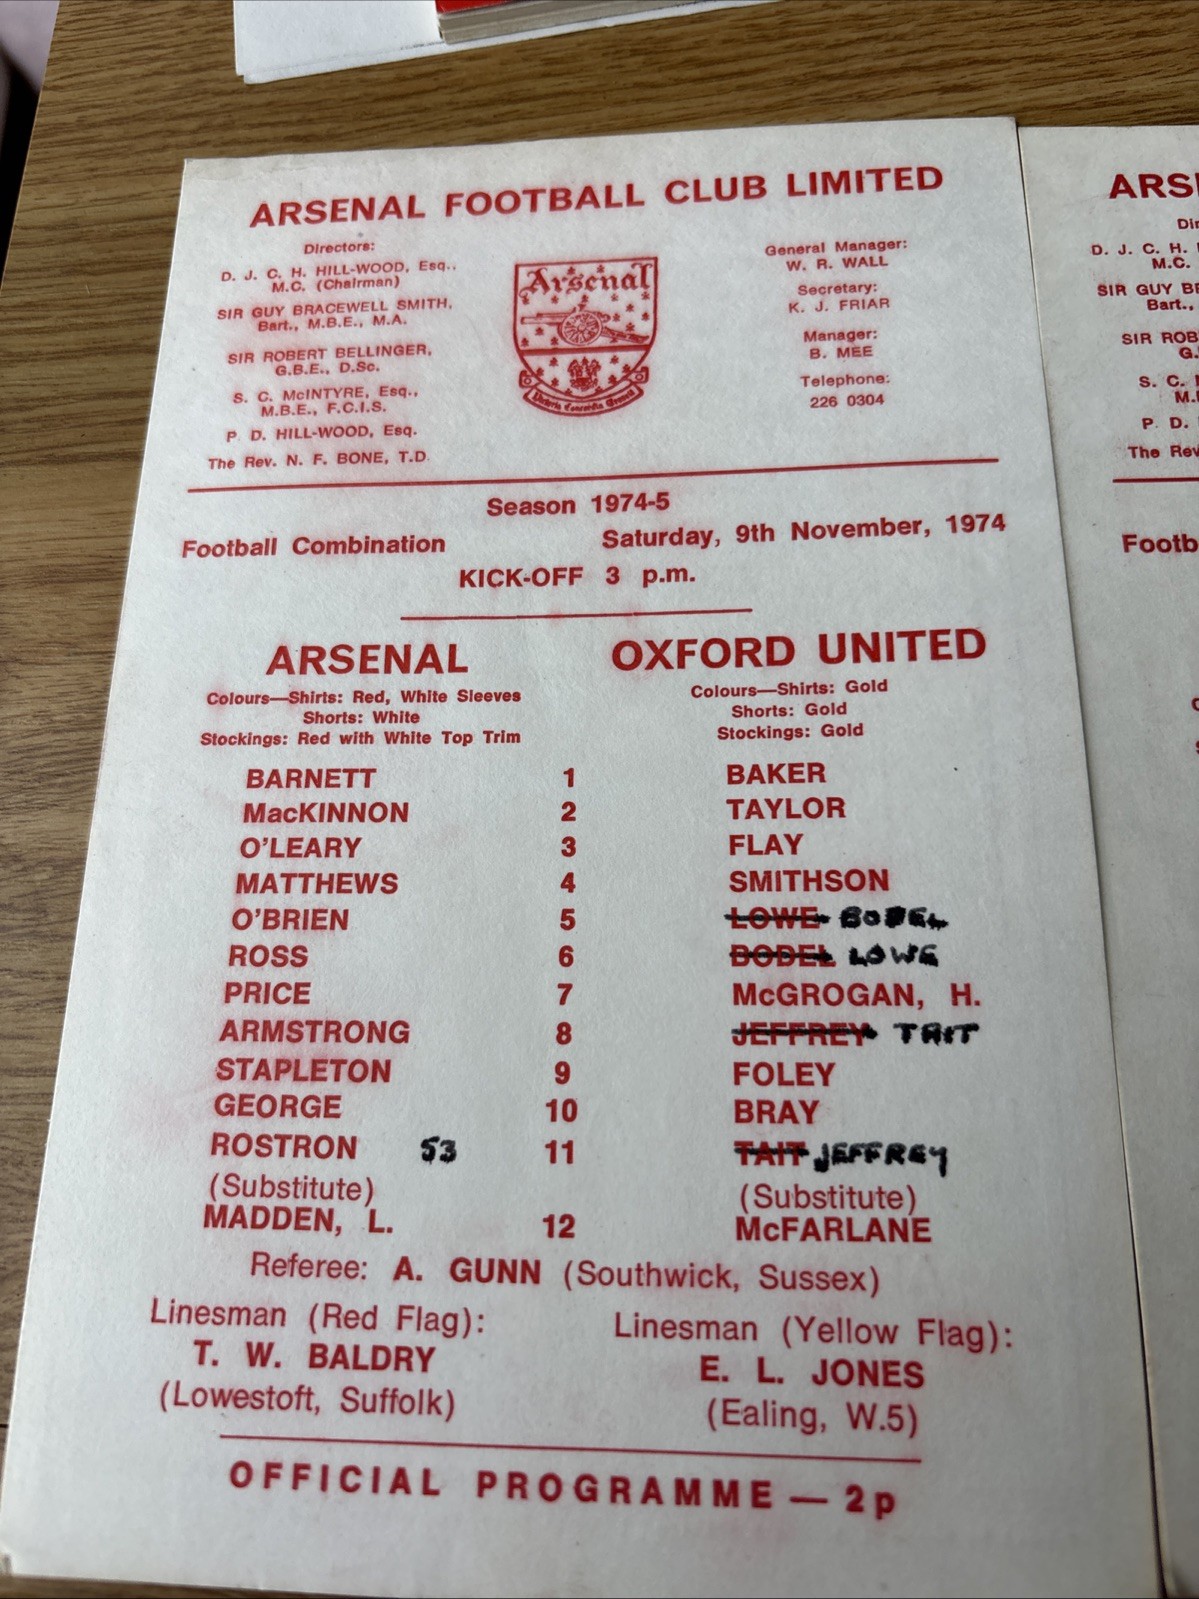 ARSENAL FOOTBALL CLUB LIMITED
Directors:
D. J. C. H. HILL-WOOD, Esq.,
M.C. (Chairman)
SIR GUY BRACEWELL SMITH,
Bart., M.B.E., M.A.
SIR ROBERT BELLINGER,
G.B.E., D.Sc.
S. C. McINTYRE, Esq.,
M.B.E., F.C.I.S.
P. D. HILL-WOOD, Esq.
The Rev. N. F. BONE, T.D.
Arsenal
Victoria Concordia Crescit
General Manager:
W. R. WALL
Secretary:
K. J. FRIAR
Manager:
B. MEE
Telephone:
226 0304
Season 1974-5
Football Combination Saturday, 9th November, 1974
KICK-OFF 3 p.m.
ARSENAL OXFORD UNITED
Colours—Shirts: Red, White Sleeves Colours—Shirts: Gold
Shorts: White Shorts: Gold
Stockings: Red with White Top Trim Stockings: Gold
BARNETT 1 BAKER
MacKINNON 2 TAYLOR
O'LEARY 3 FLAY
MATTHEWS 4 SMITHSON
O'BRIEN 5 LOWE BODEL
ROSS 6 BODEL LOWE
PRICE 7 McGROGAN, H.
ARMSTRONG 8 JEFFREY TAIT
STAPLETON 9 FOLEY
GEORGE 10 BRAY
ROSTRON 53 11 TAIT JEFFREY
(Substitute) (Substitute)
MADDEN, L. 12 McFARLANE
Referee: A. GUNN (Southwick, Sussex)
Linesman (Red Flag): Linesman (Yellow Flag):
T. W. BALDRY E. L. JONES
(Lowestoft, Suffolk) (Ealing, W.5)
OFFICIAL PROGRAMME — 2p
ARS
Dir
D. J. C. H.
M.C.
SIR GUY B
Bart.,
SIR ROB
G.
S. C.
M.
P. D.
The Rev
Footb